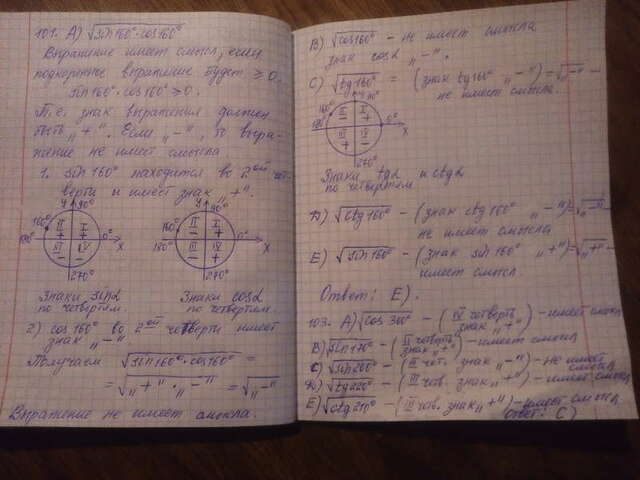 101. А) √sin160°·cos160°
Выражение имеет смысл, если
подкоренное выражение будет ≥ 0.
sin160°·cos160° ≥ 0.
Т.е. знак выражения должен
быть „+". Если „−", то выра-
жение не имеет смысла
1. sin160° находится во 2ой чет-
верти и имеет знак „+".
У 90°
160° II + I + 0°
180° III − IV − X
270°
У 90°
160° II − I + 0°
180° III − IV + X
270°
Знаки sinα
по четвертям.
Знаки cosα
по четвертям.
2) cos160° во 2ой четверти имеет
знак „−"
Получаем √sin160°·cos160° =
= √„+"·„−" = √„−"
Выражение не имеет смысла.
В) √cos160° - не имеет смысла
знак cosα „−".
С) √tg160° = (знак tg160° „−") = √„−" −
не имеет смысла.
У 90°
160° II − I + 0°
180° III + IV − X
270°
Знаки tgα и ctgα
по четвертям
Д) √ctg160° - (знак ctg160° „−") = √„−"
не имеет смысла
Е) √sin160° - (знак sin160° „+") = √„+" −
имеет смысл.
Ответ: Е).
103. А) √cos300° - (IV четверть знак „+") - имеет смысл
В) √sin170° - (II четверть знак „+") - имеет смысл
С) √sin200° - (III чет. знак „−") - не имеет смысла
Д) √tg220° - (III чв. знак „+") - имеет смысл
Е) √ctg210° - (III чтв. знак „+") - имеет смысл
Ответ: С)